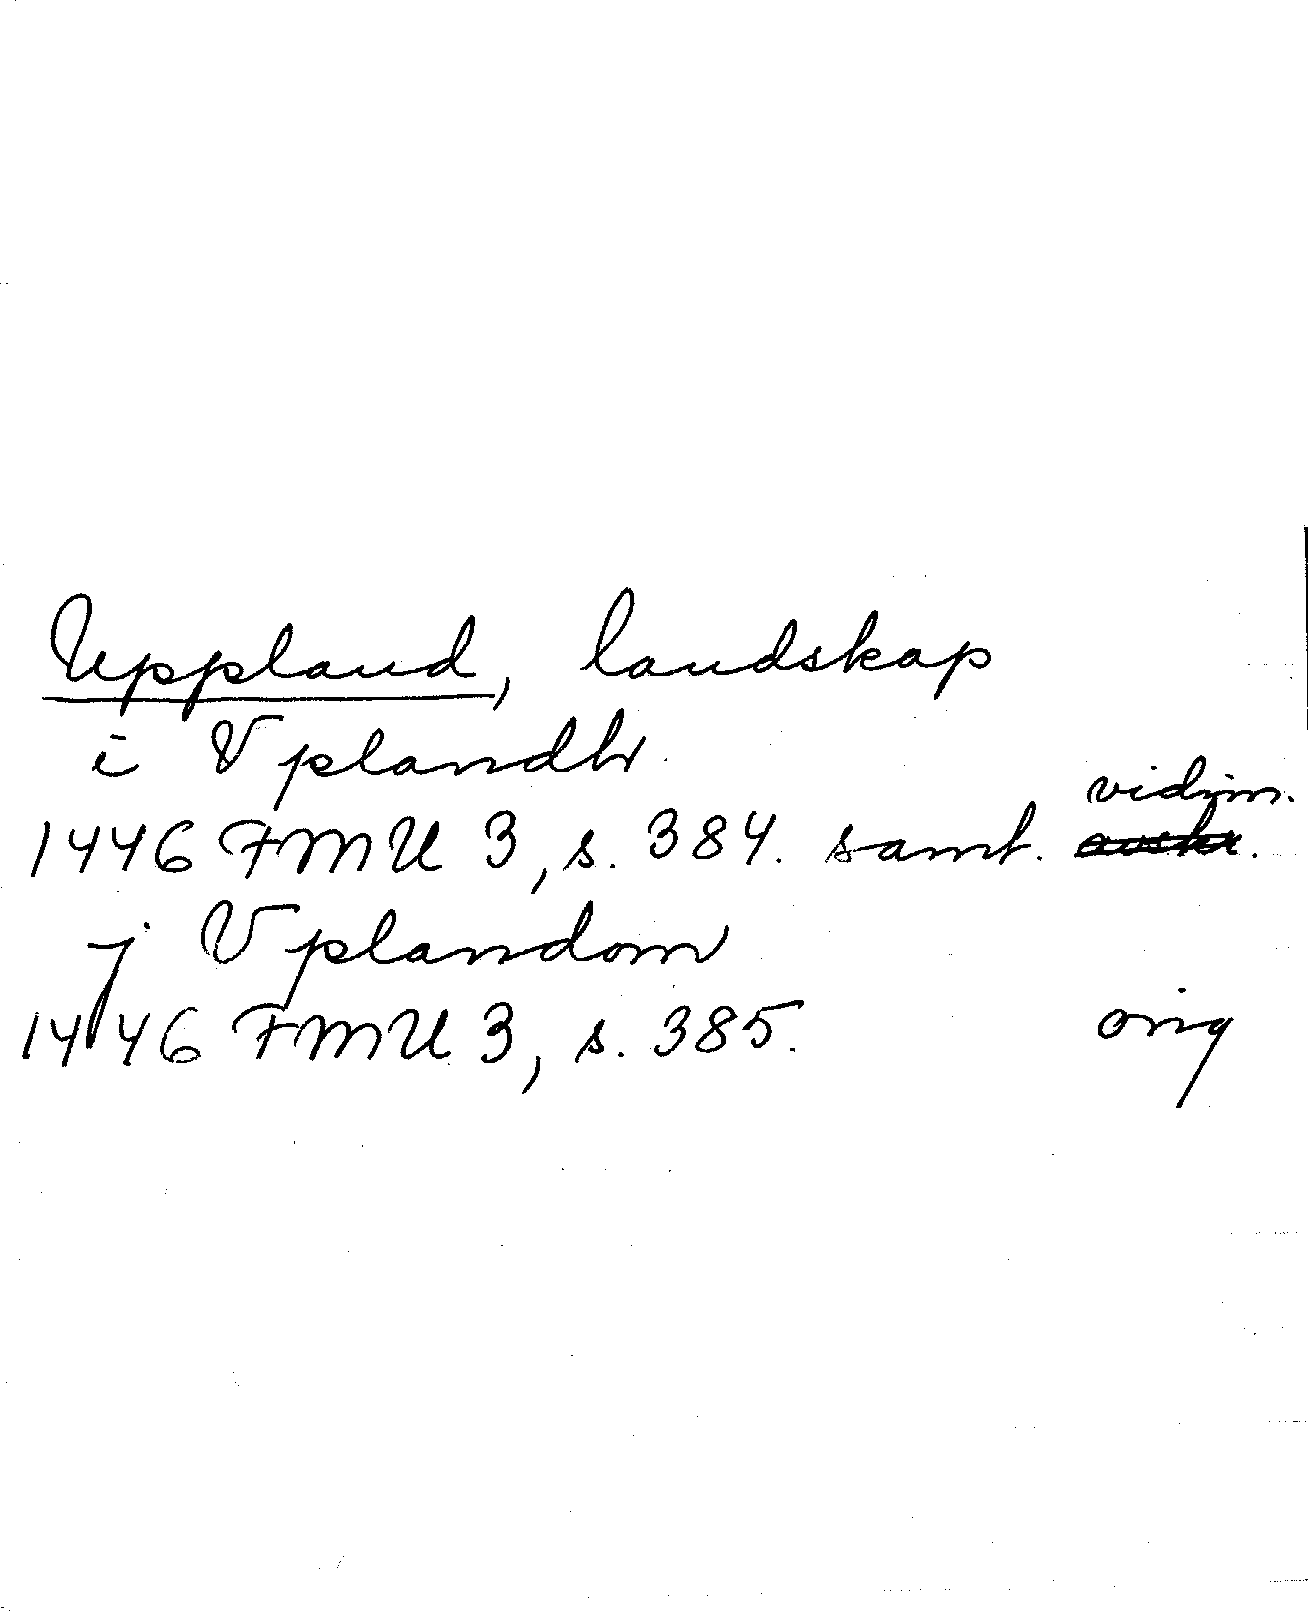 Uppland, landskap
i Vplandh
vidim.
1446 FMU 3, s. 384. samt. avskr.
j Vplandom
1446 FMU 3, s. 385. orig